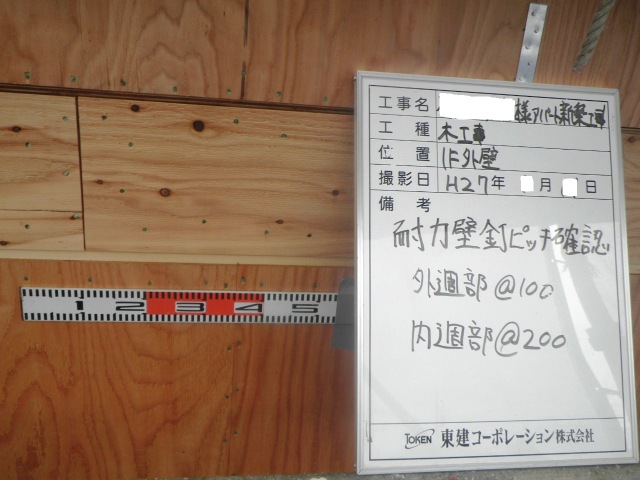 工事名 様アパート新築工事
工種 木工事
位置 1F外壁
撮影日 H27年 月 日
備考
耐力壁釘ピッチ確認
外週部@100
内週部@200
TOKEN 東建コーポレーション株式会社
1 2 3 4 5